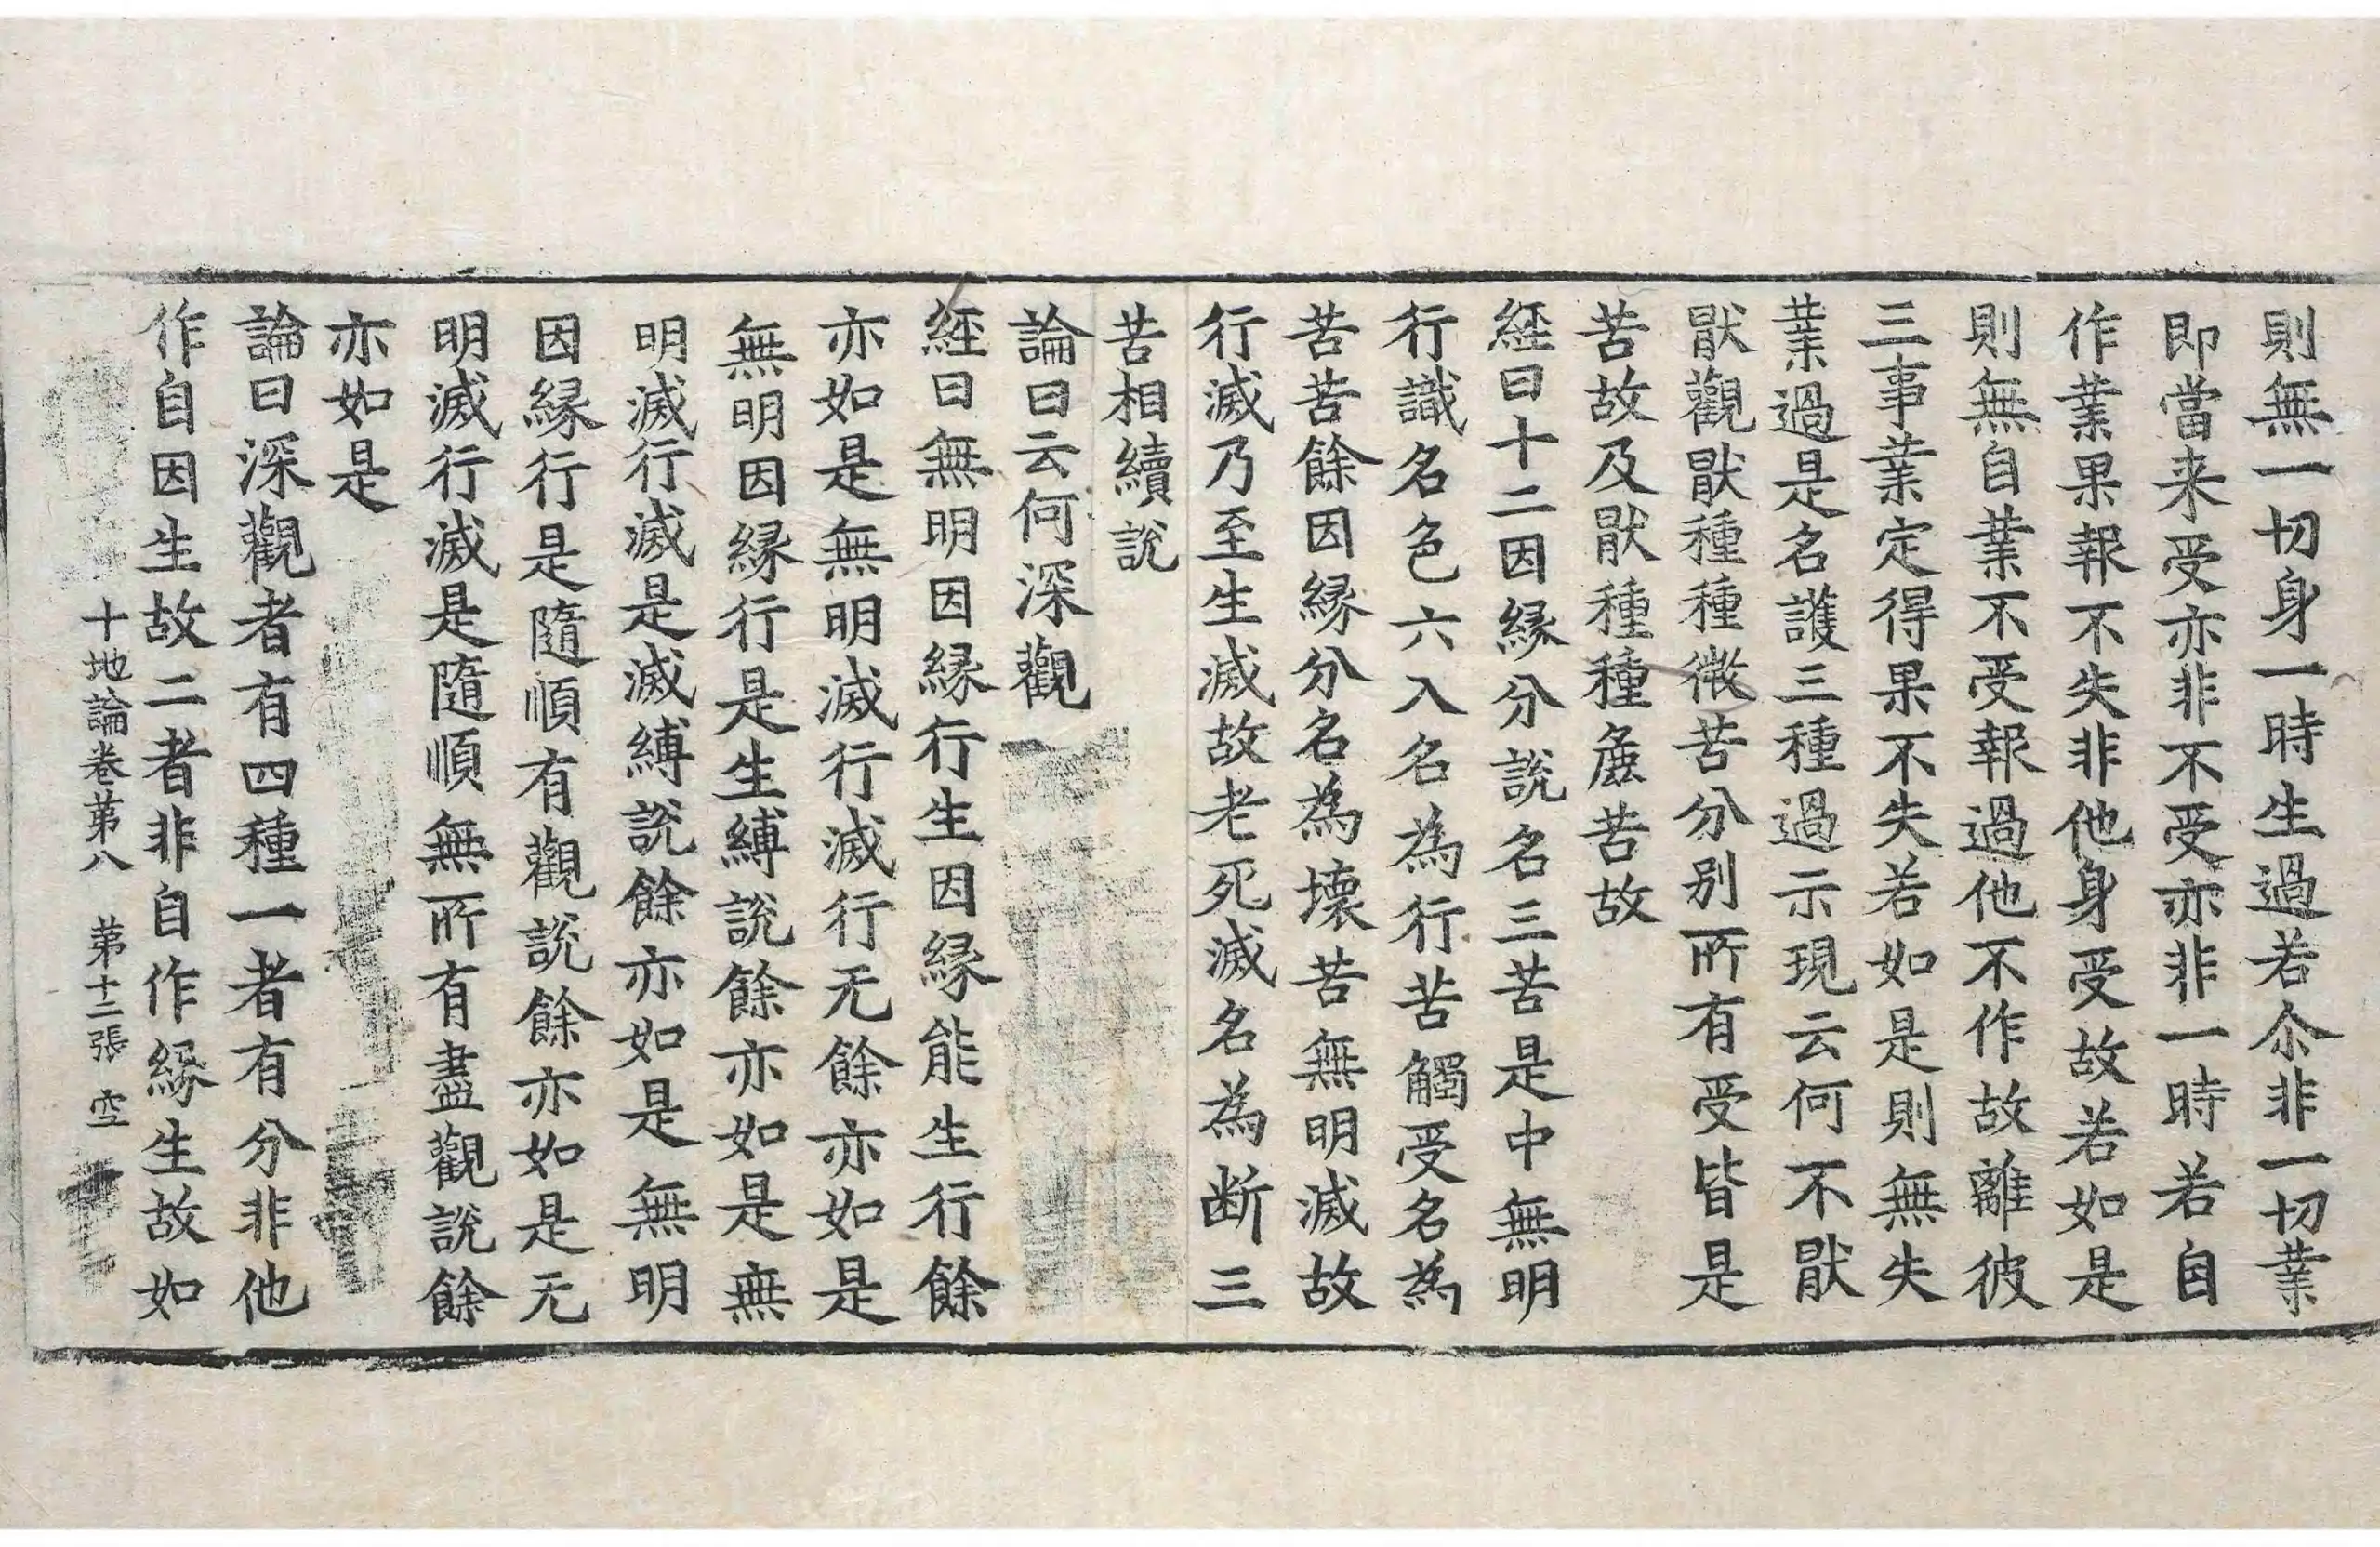 則無一切身一時生過若尒非一切業
即當来受亦非不受亦非一時若自
作業果報不失非他身受故若如是
則無自業不受報過他不作故離彼
三事業定得果不失若如是則無失
業過是名護三種過示現云何不猒
猒觀猒種種微苦分别所有受皆是
苦故及猒種種麁苦故
経曰十二因縁分說名三苦是中無明
行識名色六入名為行苦觸受名為
苦苦餘因縁分名為壞苦無明滅故
行滅乃至生滅故老死滅名為断三
苦相續說
論曰云何深觀
経曰無明因縁行生因縁能生行餘
亦如是無明滅行滅行无餘亦如是
無明因縁行是生縛說餘亦如是無
明滅行滅是滅縛說餘亦如是無明
因縁行是隨順有觀說餘亦如是无
明滅行滅是隨順無所有盡觀說餘
亦如是
論曰深觀者有四種一者有分非他
作自因生故二者非自作縁生故如
十地論卷第八 第十二張 空